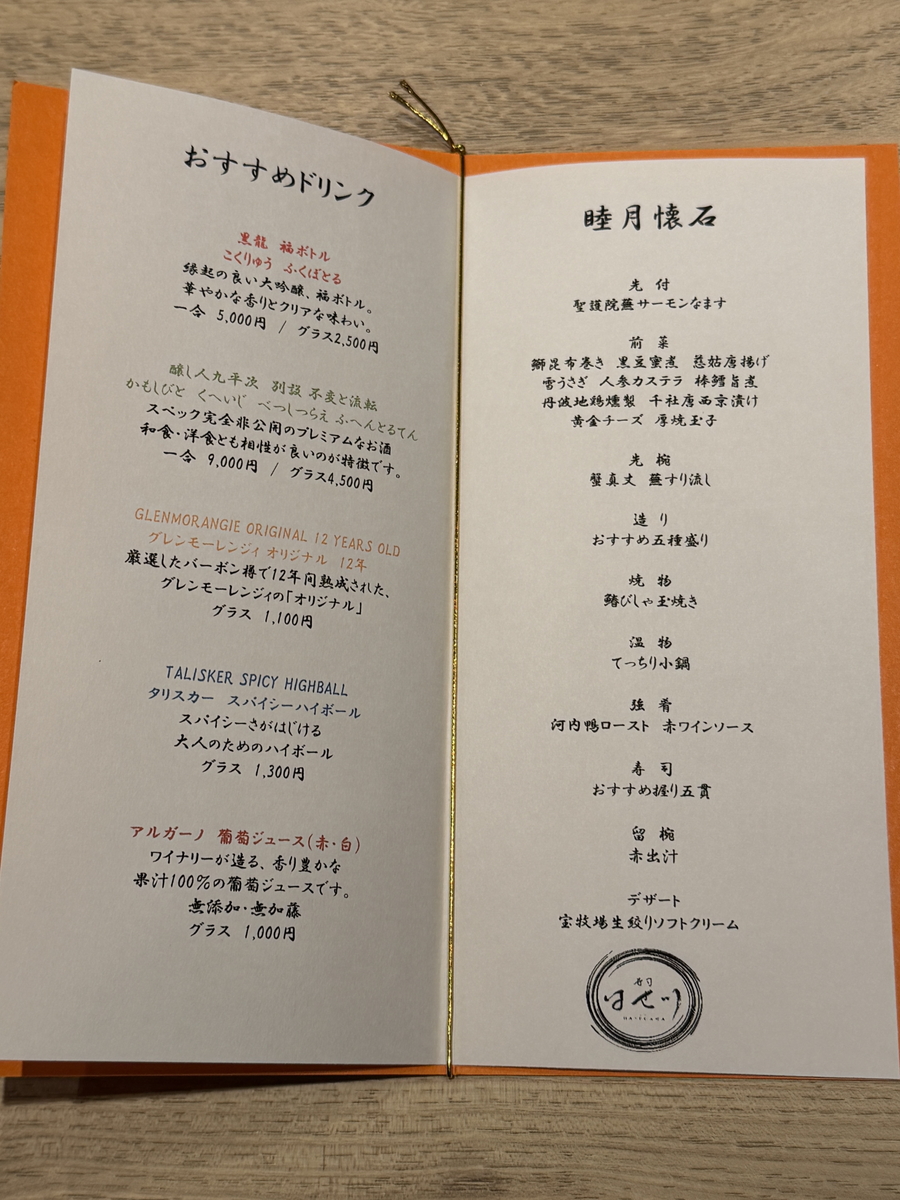 おすすめドリンク
黒龍 福ボトル
こくりゅう ふくぼとる
縁起の良い大吟醸、福ボトル。
華やかな香りとクリアな味わい。
一合 5,000円 / グラス2,500円
醸し人九平次 別誂 不変と流転
かもしびと くへいじ べつしつらえ ふへんとるてん
スペック完全非公開のプレミアムなお酒
和食・洋食とも相性が良いのが特徴です。
一合 9,000円 / グラス4,500円
GLENMORANGIE ORIGINAL 12 YEARS OLD
グレンモーレンジィ オリジナル 12年
厳選したバーボン樽で12年間熟成された、
グレンモーレンジィの「オリジナル」
グラス 1,100円
TALISKER SPICY HIGHBALL
タリスカー スパイシーハイボール
スパイシーさがはじける
大人のためのハイボール
グラス 1,300円
アルガーノ 葡萄ジュース(赤・白)
ワイナリーが造る、香り豊かな
果汁100%の葡萄ジュースです。
無添加・無加藤
グラス 1,000円
睦月懐石
先 付
聖護院蕪サーモンなます
前 菜
鰤昆布巻き 黒豆蜜煮 慈姑唐揚げ
雪うさぎ 人参カステラ 棒鱈旨煮
丹波地鶏燻製 千社唐西京漬け
黄金チーズ 厚焼玉子
先 椀
蟹真丈 蕪すり流し
造 り
おすすめ五種盛り
焼 物
鰆びしゃ玉焼き
温 物
てっちり小鍋
強 肴
河内鴨ロースト 赤ワインソース
寿 司
おすすめ握り五貫
留 椀
赤出汁
デザート
宝牧場生絞りソフトクリーム
寿司
はせ川